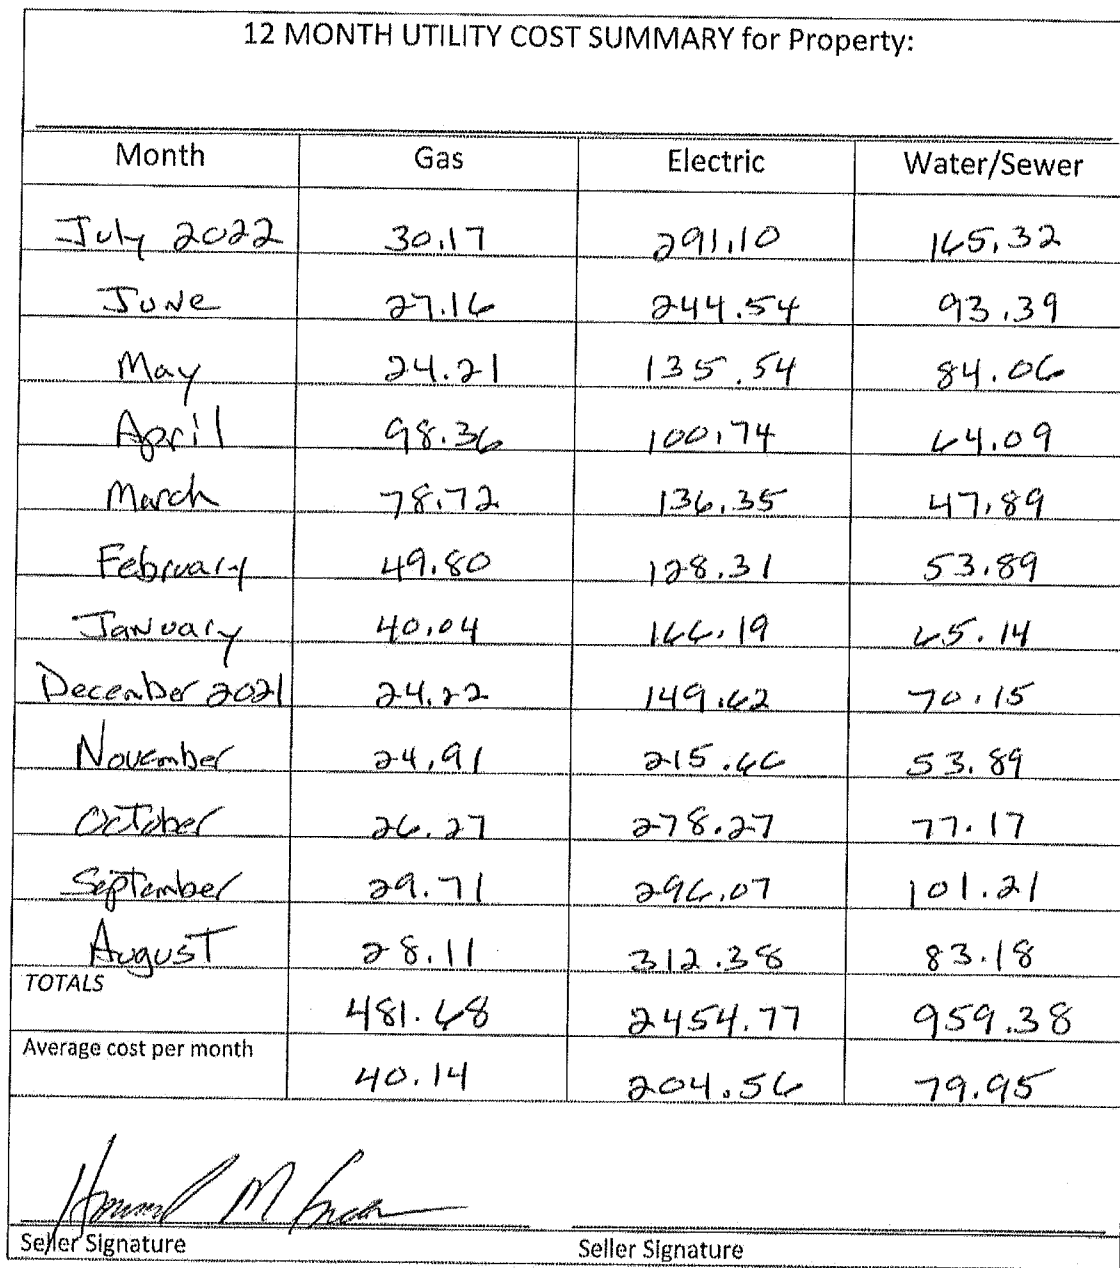 12 MONTH UTILITY COST SUMMARY for Property:
Month Gas Electric Water/Sewer
July 2022 30.17 291.10 165.32
June 27.16 244.54 93.39
May 24.21 135.54 84.06
April 98.36 100.74 64.09
March 78.72 136.35 47.89
February 49.80 128.31 53.89
January 40.04 166.19 65.14
December 2021 24.22 149.62 70.15
November 24.91 215.66 53.89
October 26.27 278.27 77.17
September 29.71 296.07 101.21
August 28.11 312.38 83.18
TOTALS 481.68 2454.77 959.38
Average cost per month 40.14 204.56 79.95
Seller Signature Seller Signature